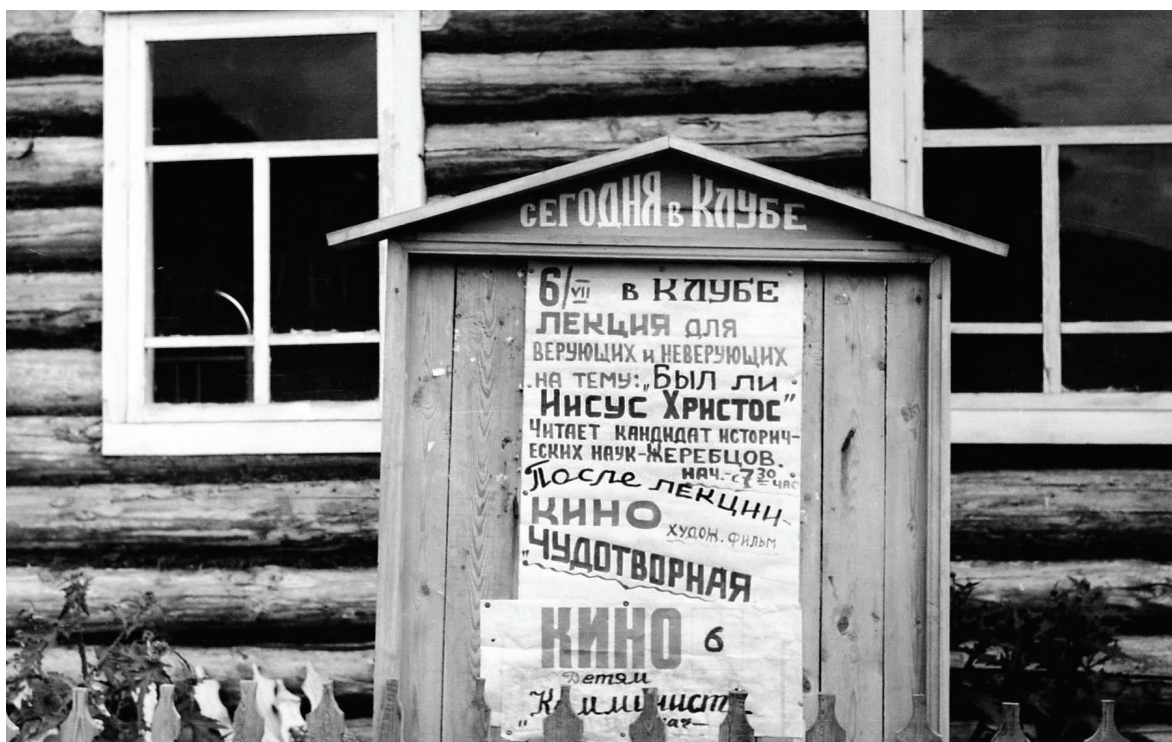 СЕГОДНЯ в КЛУБЕ
6/VII в КЛУБЕ
ЛЕКЦИЯ ДЛЯ
ВЕРУЮЩИХ и НЕВЕРУЮЩИХ
НА ТЕМУ: „БЫЛ ЛИ
ИИСУС ХРИСТОС"
ЧИТАЕТ КАНДИДАТ ИСТОРИЧ-
ЕСКИХ НАУК-ЖЕРЕБЦОВ.
НАЧ.-с 7 30 ЧАС
После лекции-
КИНО ХУДОЖ. ФИЛЬМ
„ЧУДОТВОРНАЯ
КИНО 6
Детям
„Коммунист"